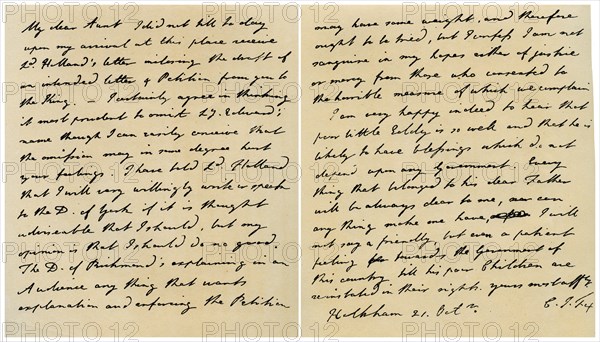 My dear Aunt I did not till to day
upon my arrival at this place receive
Ld. Holland's letter inclosing the draft of
an intended letter & Petition from you to
the King. — I certainly agree in thinking
it most prudent to omit Ld. Edward's
name though I can easily conceive that
the omission may in some degree hurt
your feelings. I have told Ld. Holland
that I will very willingly work or speak
to the D. of York if it is thought
adviseable that I should, but my
opinion is that I should do no good.
The D. of Richmond's explaining in an
Audience any thing that wants
explanation and enforcing the Petition
may have some weight, and therefore
ought to be tried, but I confess I am not
sanguine in my hopes either of justice
or mercy from those who consented to
the horrible measure of which we complain
I am very happy indeed to hear that
poor little Eddy is so well and that he is
likely to have blessings which do not
depend upon any Government. Every
thing that belonged to his dear Father
will be always dear to me, nor can
any thing make me have, I will
not say a friendly, but even a patient
feeling towards the Government of
this country till his poor Children are
reinstated in their rights. yours most affly
Holkham 21. Octr.
C. J. Fox
PHOTO12